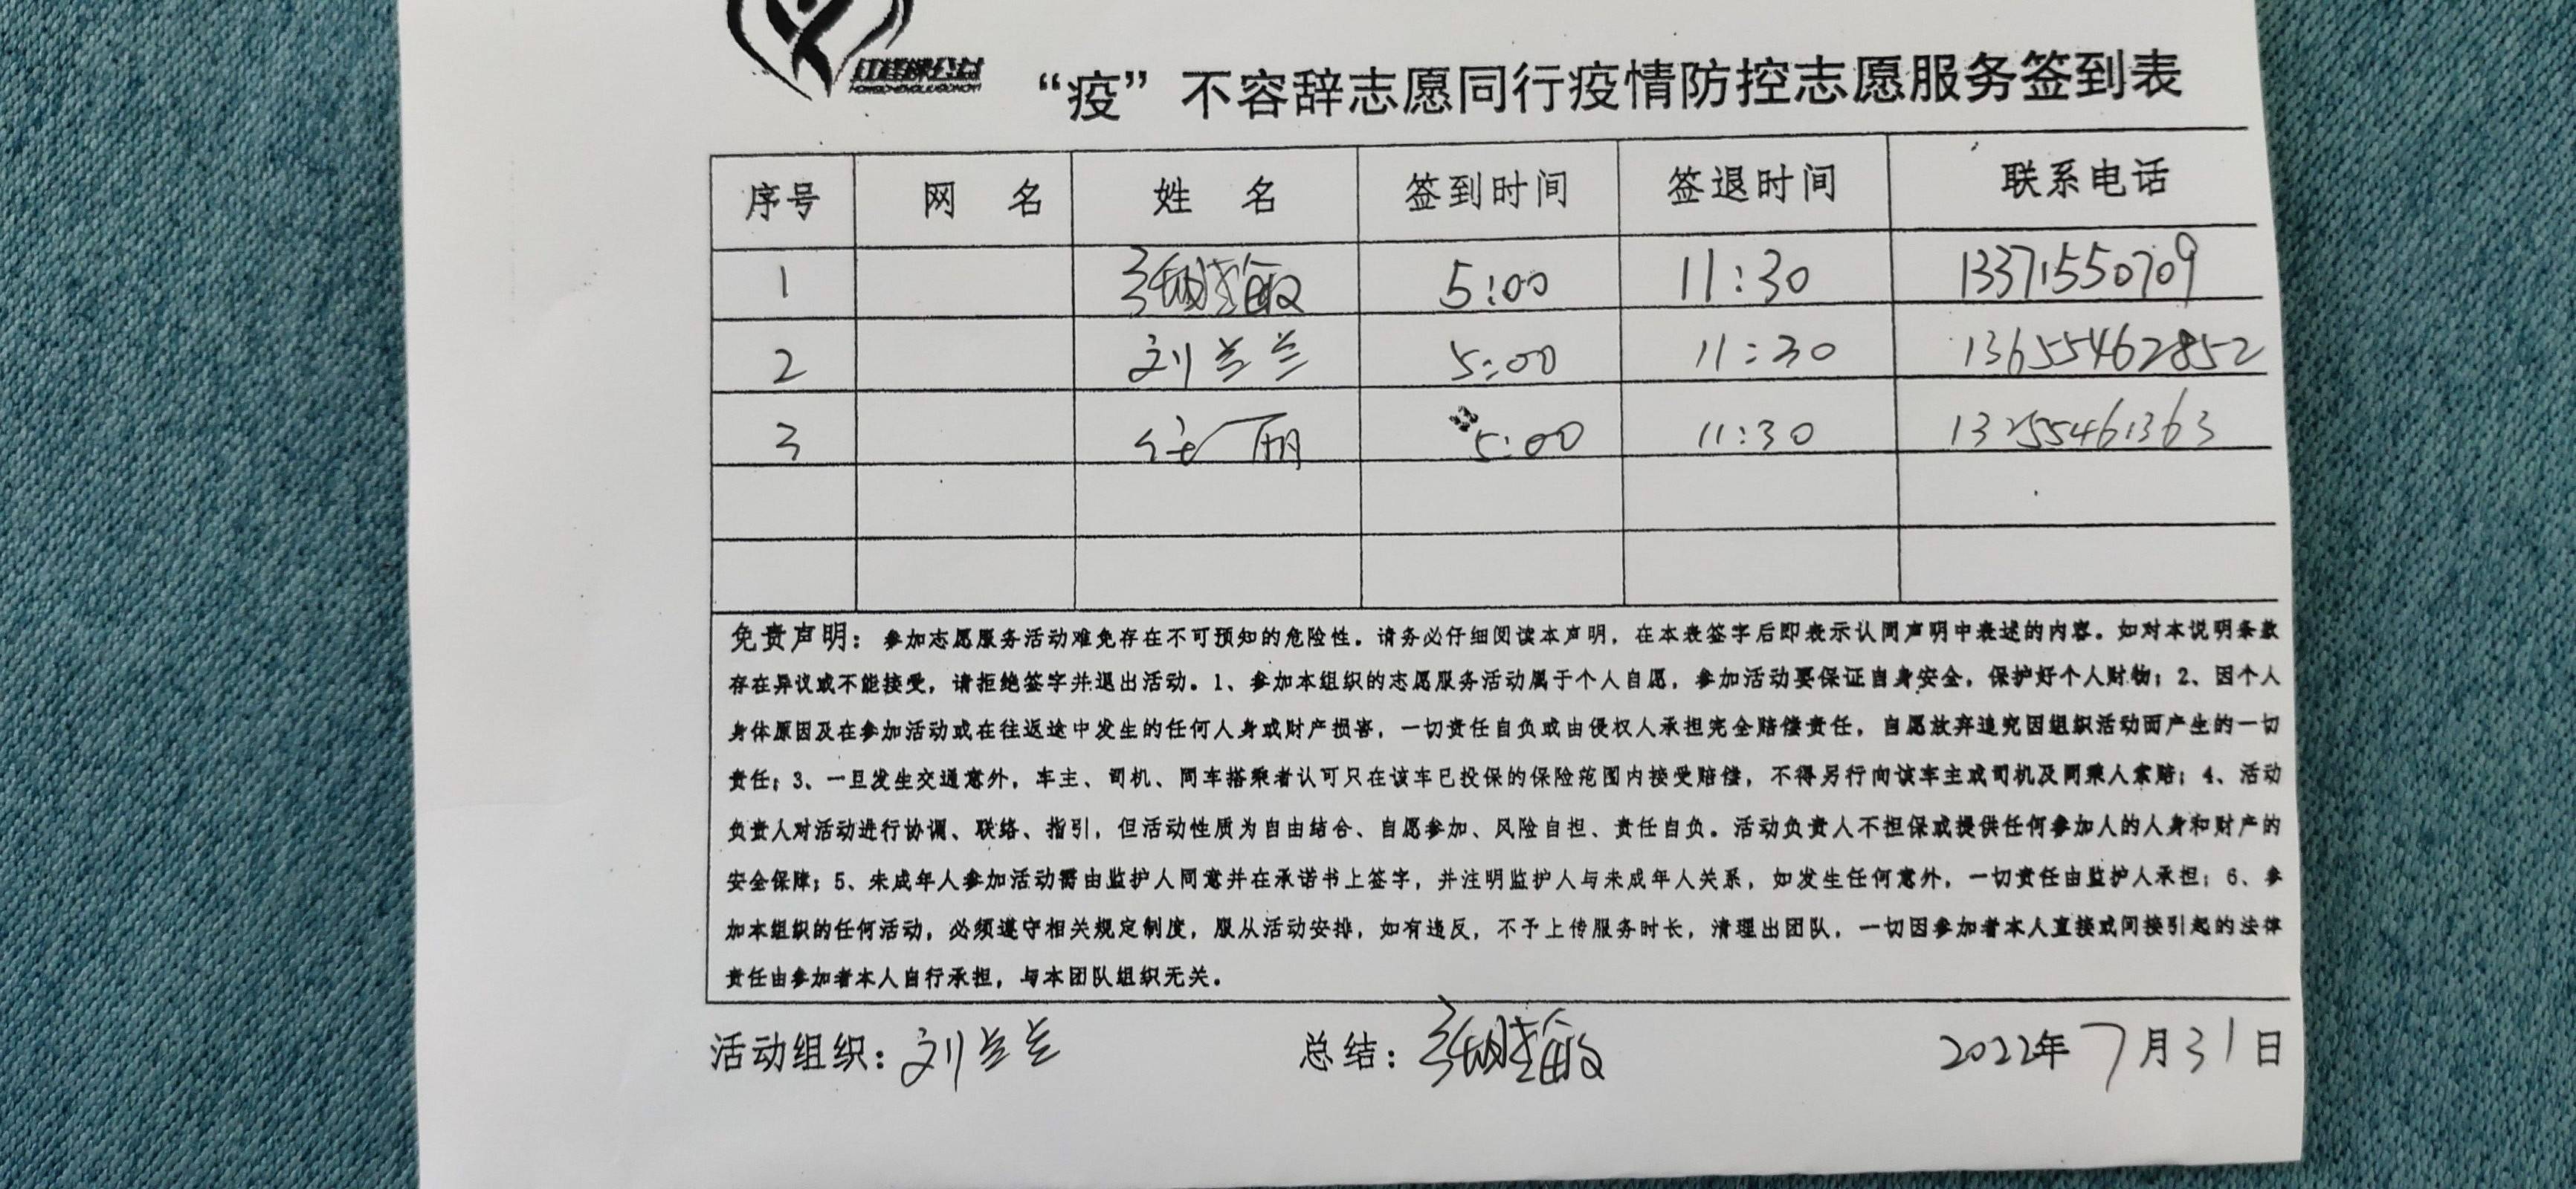 “疫”不容辞志愿同行疫情防控志愿服务签到表
序号 网 名 姓 名 签到时间 签退时间 联系电话
1 5:00 11:30 13371550709
2 刘兰兰 5:00 11:30 13655462852
3 任丽 5:00 11:30 13255461363
免责声明：参加志愿服务活动难免存在不可预知的危险性。请务必仔细阅读本声明，在本表签字后即表示认同声明中表述的内容。如对本说明条款
存在异议或不能接受，请拒绝签字并退出活动。1、参加本组织的志愿服务活动属于个人自愿，参加活动要保证自身安全，保护好个人财物；2、因个人
身体原因及在参加活动或在往返途中发生的任何人身或财产损害，一切责任自负或由侵权人承担完全赔偿责任，自愿放弃追究因组织活动而产生的一切
责任；3、一旦发生交通意外，车主、司机、同车搭乘者认可只在该车已投保的保险范围内接受赔偿，不得另行向该车主或司机及同乘人索赔；4、活动
负责人对活动进行协调、联络、指引，但活动性质为自由结合、自愿参加、风险自担、责任自负。活动负责人不担保或提供任何参加人的人身和财产的
安全保障；5、未成年人参加活动需由监护人同意并在承诺书上签字，并注明监护人与未成年人关系，如发生任何意外，一切责任由监护人承担；6、参
加本组织的任何活动，必须遵守相关规定制度，服从活动安排，如有违反，不予上传服务时长，清理出团队，一切因参加者本人直接或间接引起的法律
责任由参加者本人自行承担，与本团队组织无关。
活动组织：刘兰兰 总结： 2022年7月31日